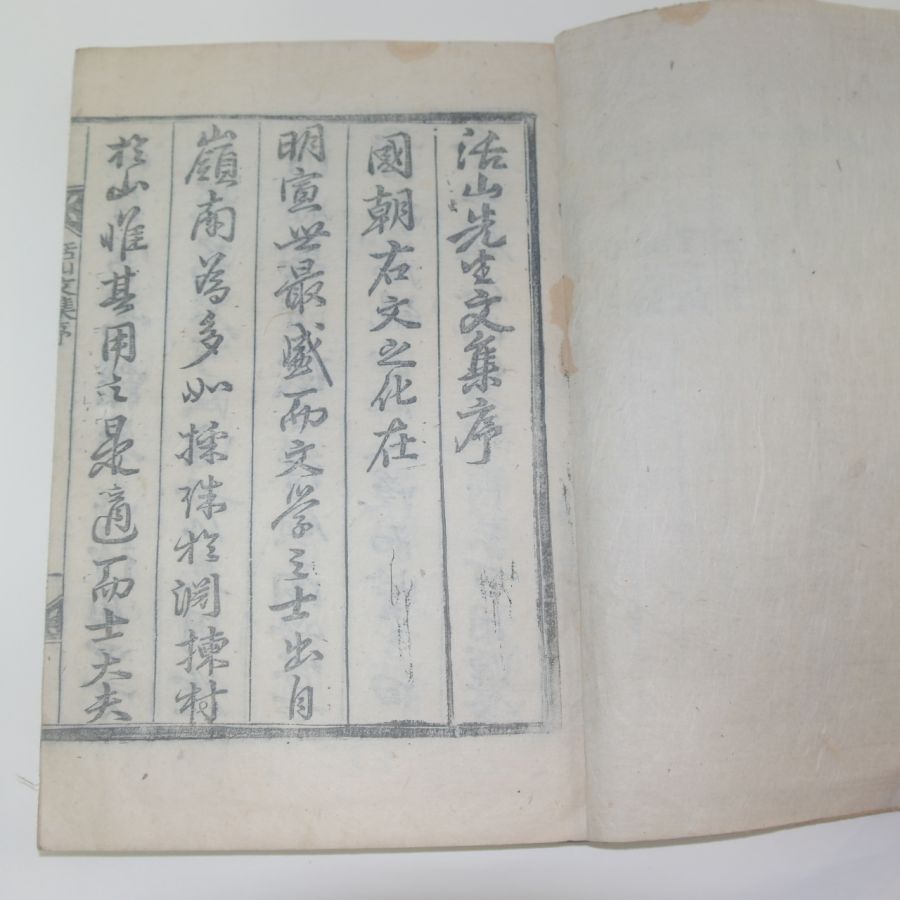 活山先生文集序
國朝右文之化在
明宣世最盛而文学之士出自
嶺南為多如探珠於淵揀材
於山惟其用之是適而士大夫
活山文集序